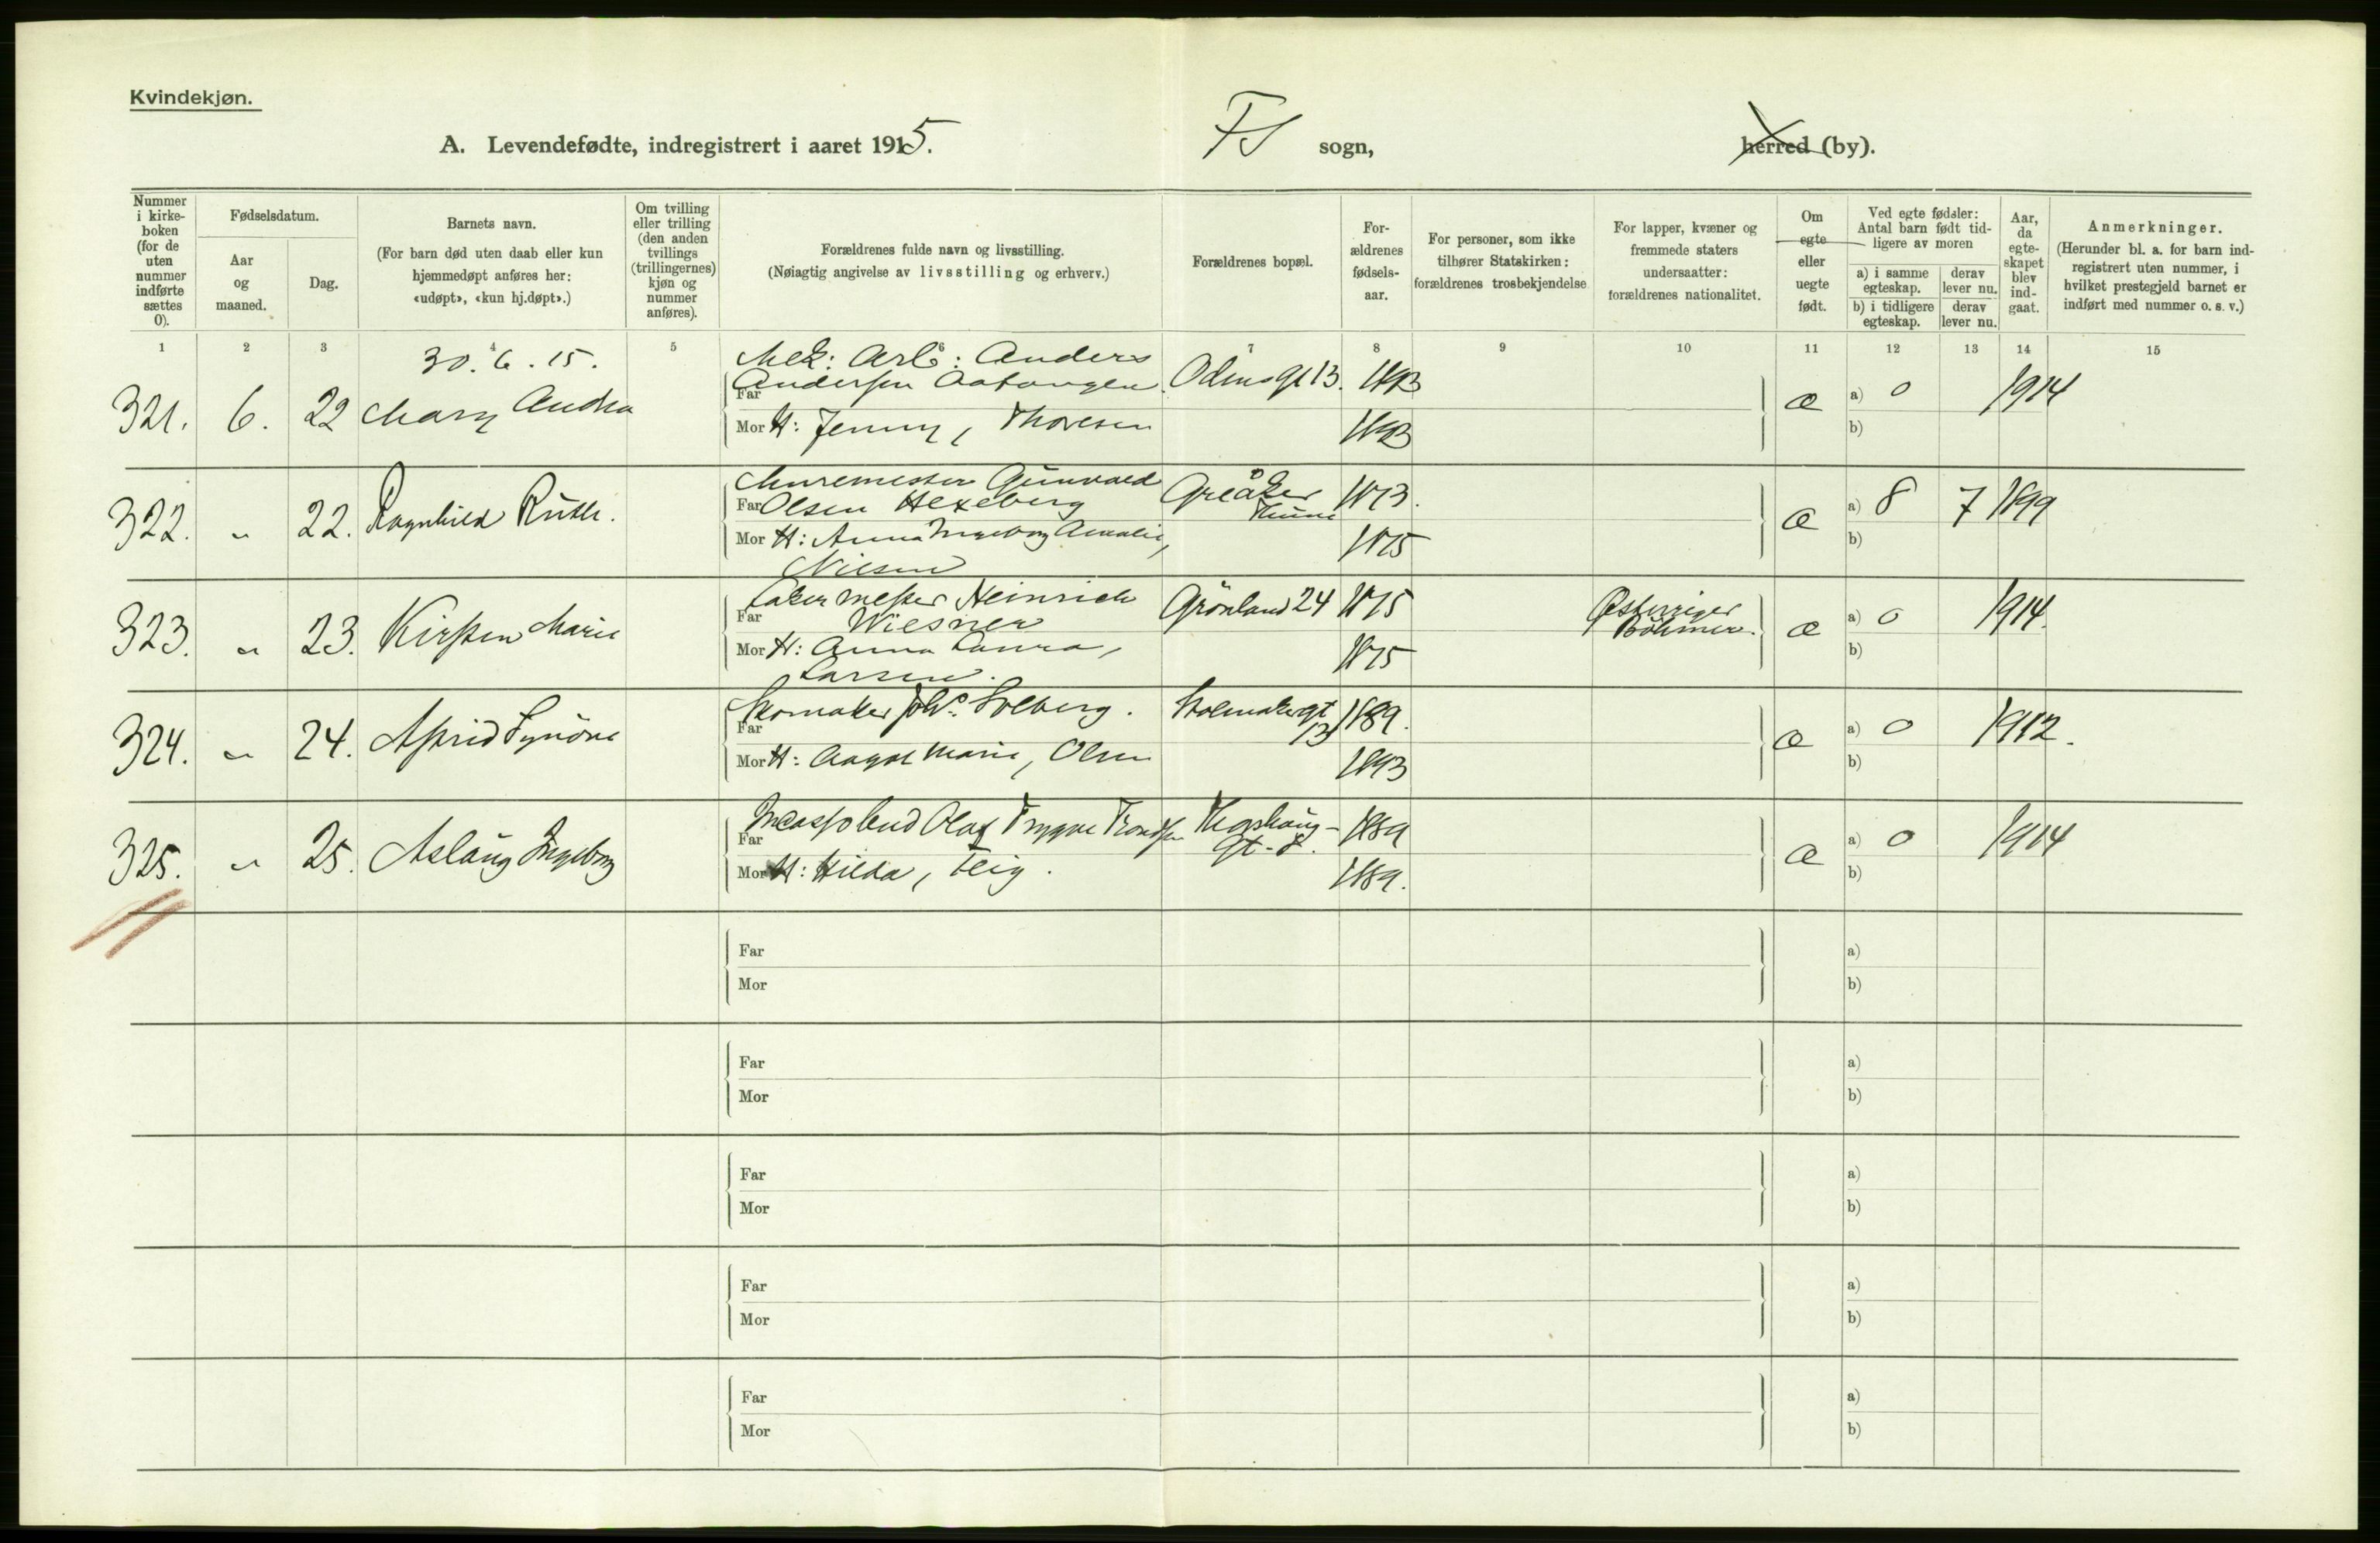 Kvindekjøn.
A. Levendefødte, indregistrert i aaret 1915. FS sogn, herred (by).
Nummer i kirkeboken (for de uten nummer indførte sættes 0).
Fødselsdatum.
Aar og maaned.
Dag.
Barnets navn.
(For barn død uten daab eller kun hjemmedøpt anføres her: «udøpt», «kun hj.døpt».)
Om tvilling eller trilling (den anden tvillings (trillingernes) kjøn og nummer anføres).
Forældrenes fulde navn og livsstilling.
(Nøiagtig angivelse av livsstilling og erhverv.)
Forældrenes bopæl.
Forældrenes fødselsaar.
For personer, som ikke tilhører Statskirken: forældrenes trosbekjendelse
For lapper, kvæner og fremmede staters undersaatter: forældrenes nationalitet.
Om egte eller uegte født.
Ved egte fødsler: Antal barn født tidligere av moren
a) i samme egteskap.
derav lever nu.
b) i tidligere egteskap.
derav lever nu.
Aar, da egteskapet blev indgaat.
Anmerkninger.
(Herunder bl. a. for barn indregistrert uten nummer, i hvilket prestegjeld barnet er indført med nummer o. s. v.)
1 2 3 4 5 6 7 8 9 10 11 12 13 14 15
30. 6. 15.
Mek: Arb: Anders
321. 6. 22 Mary Andrea Far Andersen Odinsgt 13. 1893 æ a) 0 1914
Mor H: Jenny, Thoresen 1893 b)
Muremester Gunvald
322. " 22. Ragnhild Ruth. Far Olsen Hexeberg Greåker 1873. æ a) 8 7 1899
Mor H: Anna Ingeborg Amalie, 1875 b)
Nilsen
Lakermester Heinrich Grønland 24 1875 Østerriger
323. " 23. Kirsten Marie Far Wiesner Bøhmer. æ a) 0 1914.
Mor H: Anna Laura, 1875 b)
Larsen.
324. " 24. Astrid Synøve Far Skomaker Johs. Solberg. 13 1889. æ a) 0 1912.
Mor H: Aagot Marie, Olsen 1893 b)
325. " 25. Aslaug Ingeborg Far Olaf Trygve Trondsen gt. 8. 1889 æ a) 0 1914
Mor H: Hilda, Teig. 1889. b)
Far a)
Mor b)
Far a)
Mor b)
Far a)
Mor b)
Far a)
Mor b)
Far a)
Mor b)